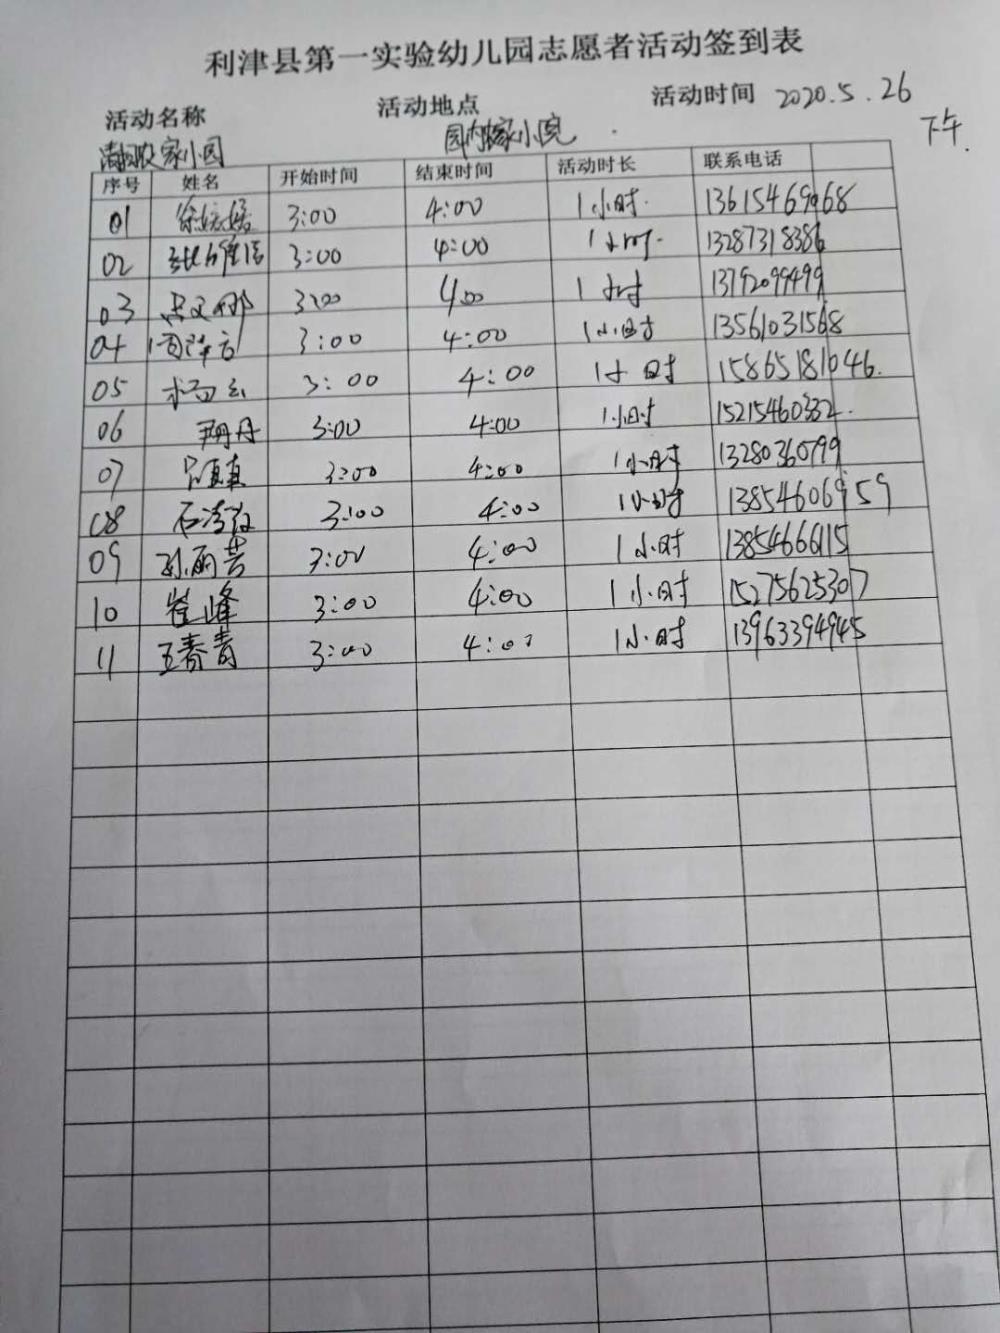 利津县第一实验幼儿园志愿者活动签到表
活动名称 活动地点 活动时间 2020.5.26
清扫农家小园 园内农家小院 下午.
序号 姓名 开始时间 结束时间 活动时长 联系电话
01 3:00 4:00 1小时. 13615469968
02 3:00 4:00 1小时. 13287318386
03 3:00 4:00 1小时 13792099499
04 3:00 4:00 1小时 13561031568
05 3:00 4:00 1小时 15865181046.
06 3:00 4:00 1小时 15215460332.
07 3:00 4:00 1小时 13280360799
08 3:00 4:00 1小时 13854606959
09 孙丽芳 3:00 4:00 1小时 1385466615
10 崔峰 3:00 4:00 1小时 15275625307
11 王春青 3:00 4:00 1小时 13963394945